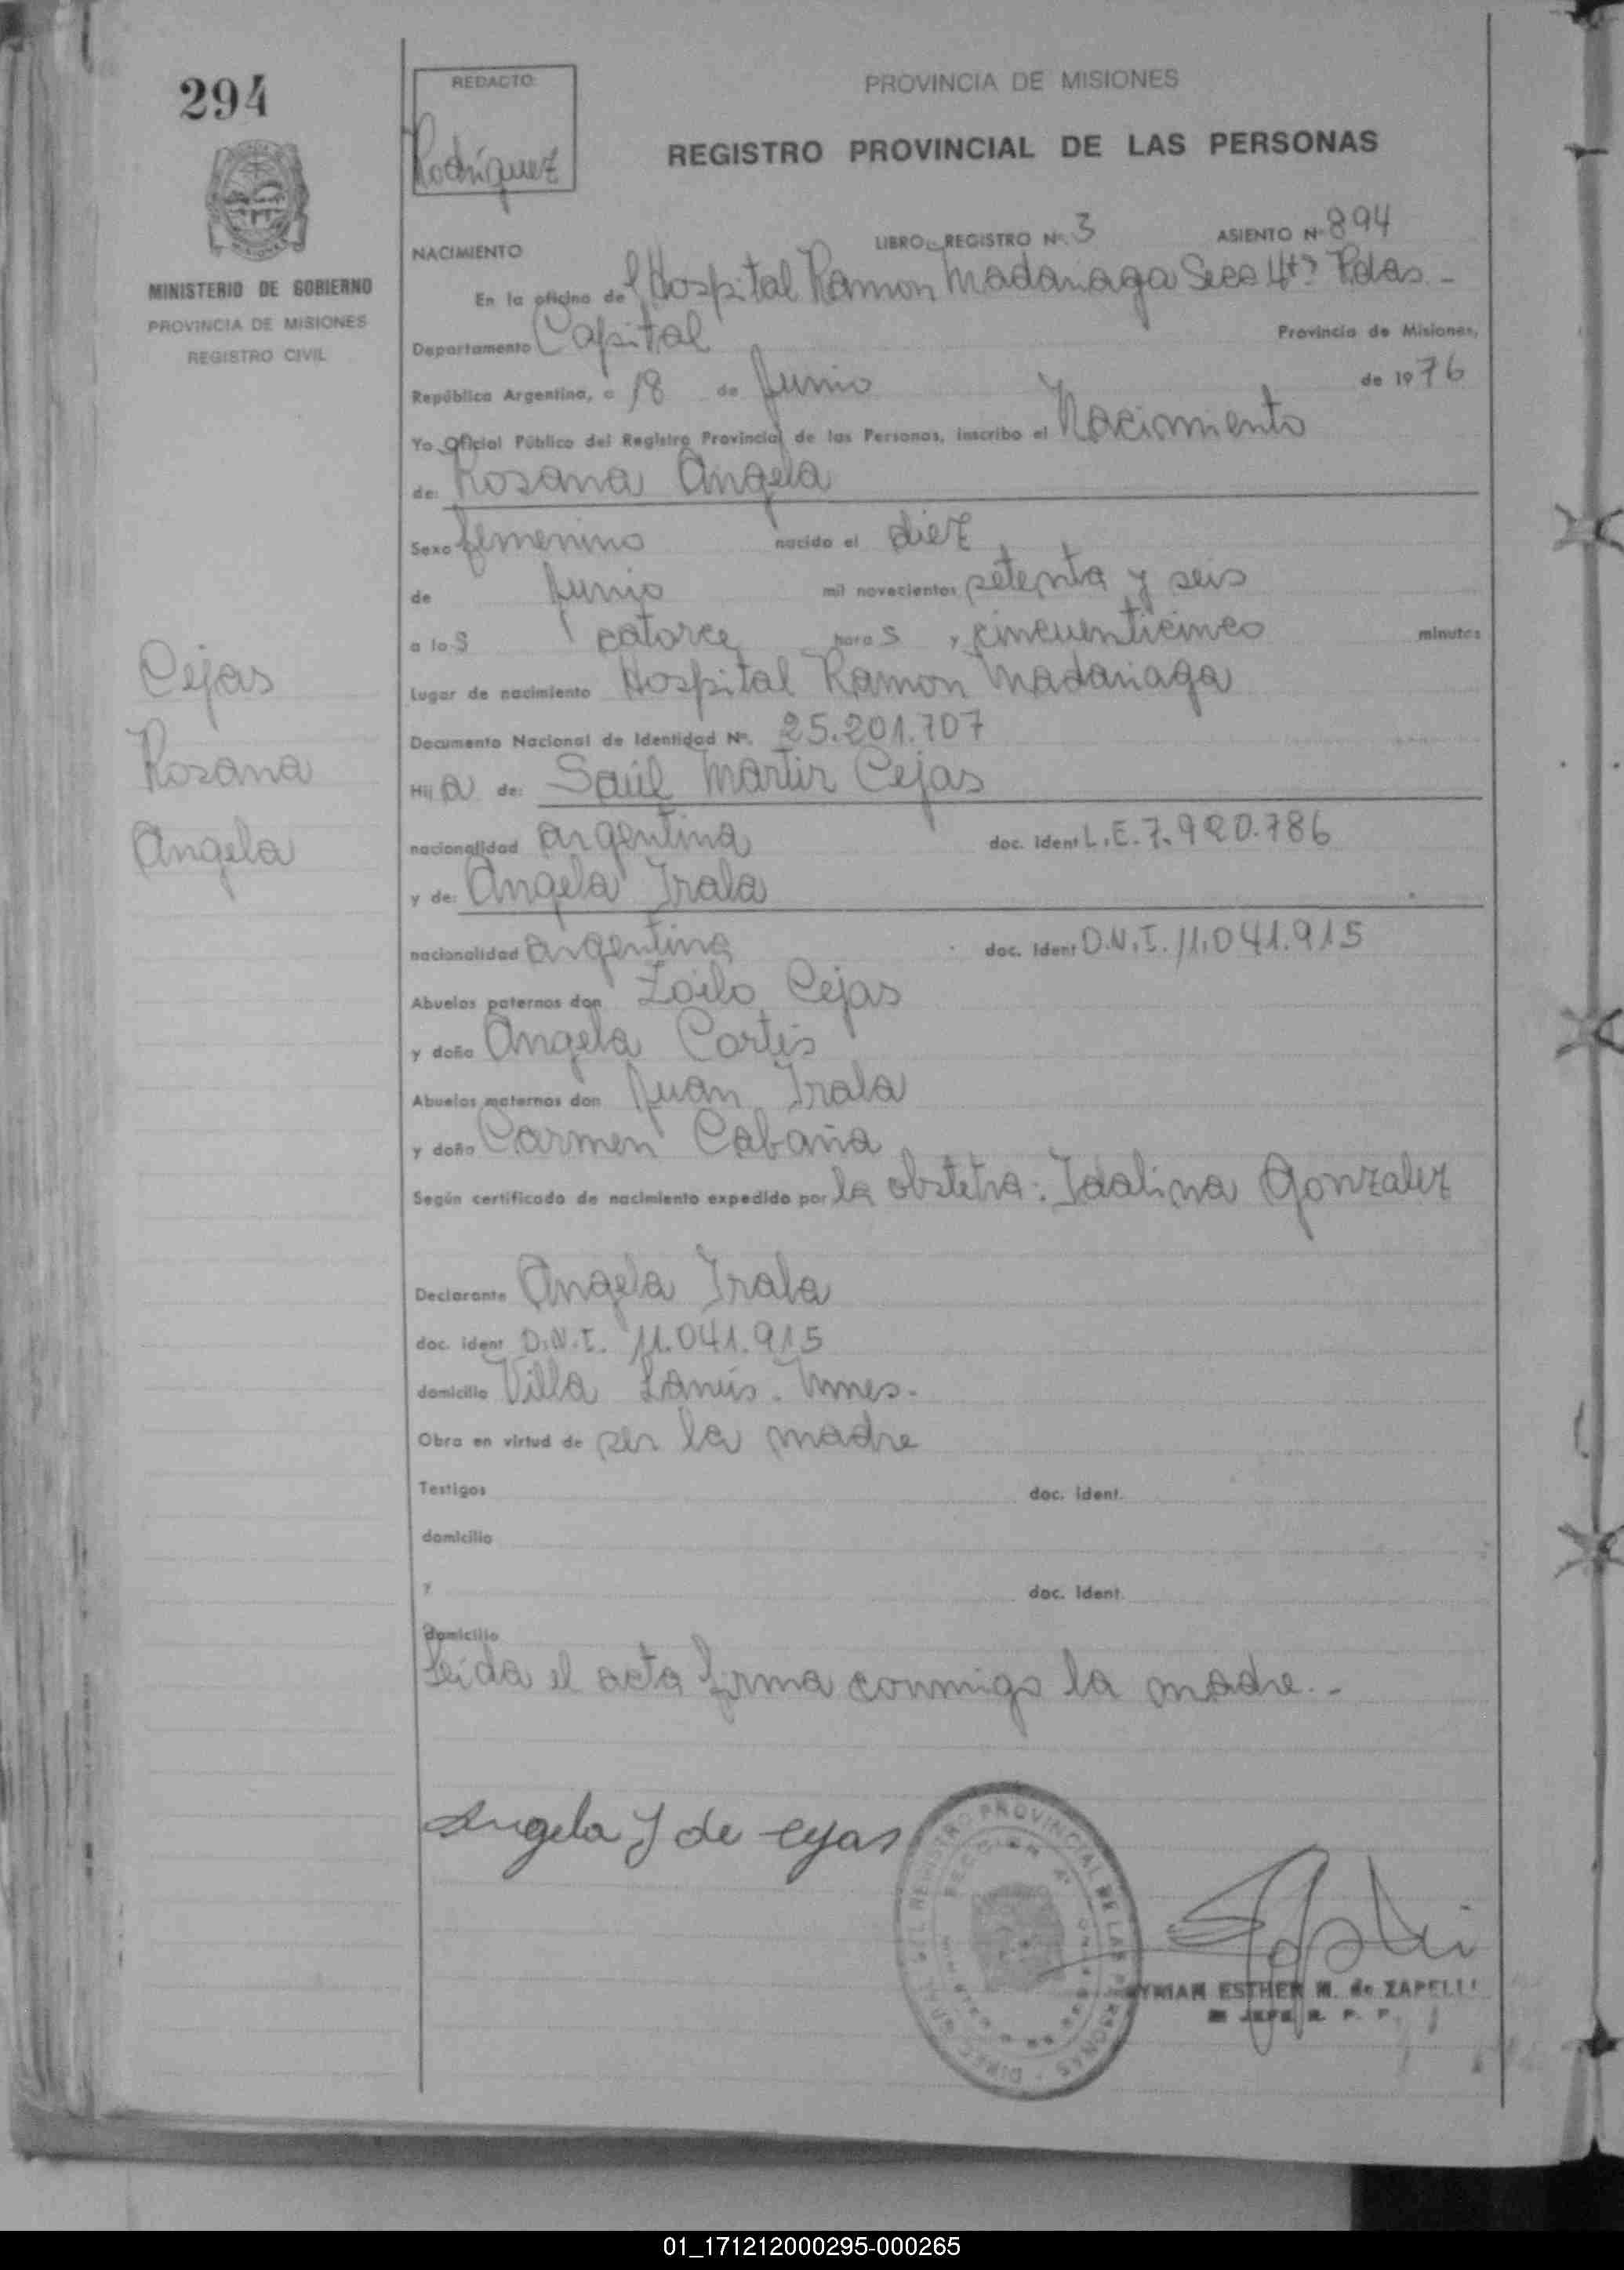 294
MINISTERIO DE GOBIERNO
PROVINCIA DE MISIONES
REGISTRO CIVIL
Cejas
Rosana
Angela
REDACTO:
Rodríguez
PROVINCIA DE MISIONES
REGISTRO PROVINCIAL DE LAS PERSONAS
NACIMIENTO LIBRO REGISTRO Nº 3 ASIENTO Nº 894
En la oficina del Hospital Ramon Madariaga Secc 4ta Pdas. -
Departamento Capital Provincia de Misiones,
República Argentina, a 18 de Junio de 1976
Yo Oficial Público del Registro Provincial de las Personas, inscribo el Nacimiento
de: Rosana Angela
Sexo femenino nacido el diez
de Junio mil novecientos setenta y seis
a las catorce horas y cincuenticinco minutos
Lugar de nacimiento Hospital Ramon Madariaga
Documento Nacional de Identidad Nº. 25.201.707
Hija de: Saúl Martir Cejas
nacionalidad argentina doc. ident L.E. 7.920.786
y de: Angela Irala
nacionalidad argentina doc. ident D.N.I. 11.041.915
Abuelos paternos don Zoilo Cejas
y doña Angela Cortis
Abuelos maternos don Juan Irala
y doña Carmen Cabaña
Según certificado de nacimiento expedido por la obstetra: Idalina Gonzalez
Declarante Angela Irala
doc. ident D.N.I. 11.041.915
domicilio Villa Lanús. Mnes.
Obra en virtud de ser la madre
Testigos doc. ident.
domicilio
y doc. ident.
domicilio
Leída el acta firma conmigo la madre. -
Angela I de Cejas
DIRECCION GRAL. DEL REGISTRO PROVINCIAL DE LAS PERSONAS
SECCION 4ª
ESTHER M. de ZAPELLI
JEFE R. P. P.
01_171212000295-000265